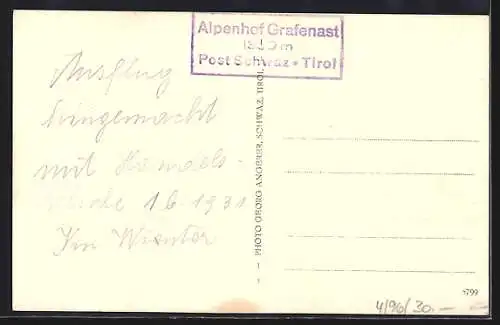 Alpenhof Grafenast
Post Schwaz • Tirol
Ausflug
mit Handels-
1931
Im Winter
– PHOTO GEORG ANGERER, SCHWAZ, TIROL –
4/96/30.–